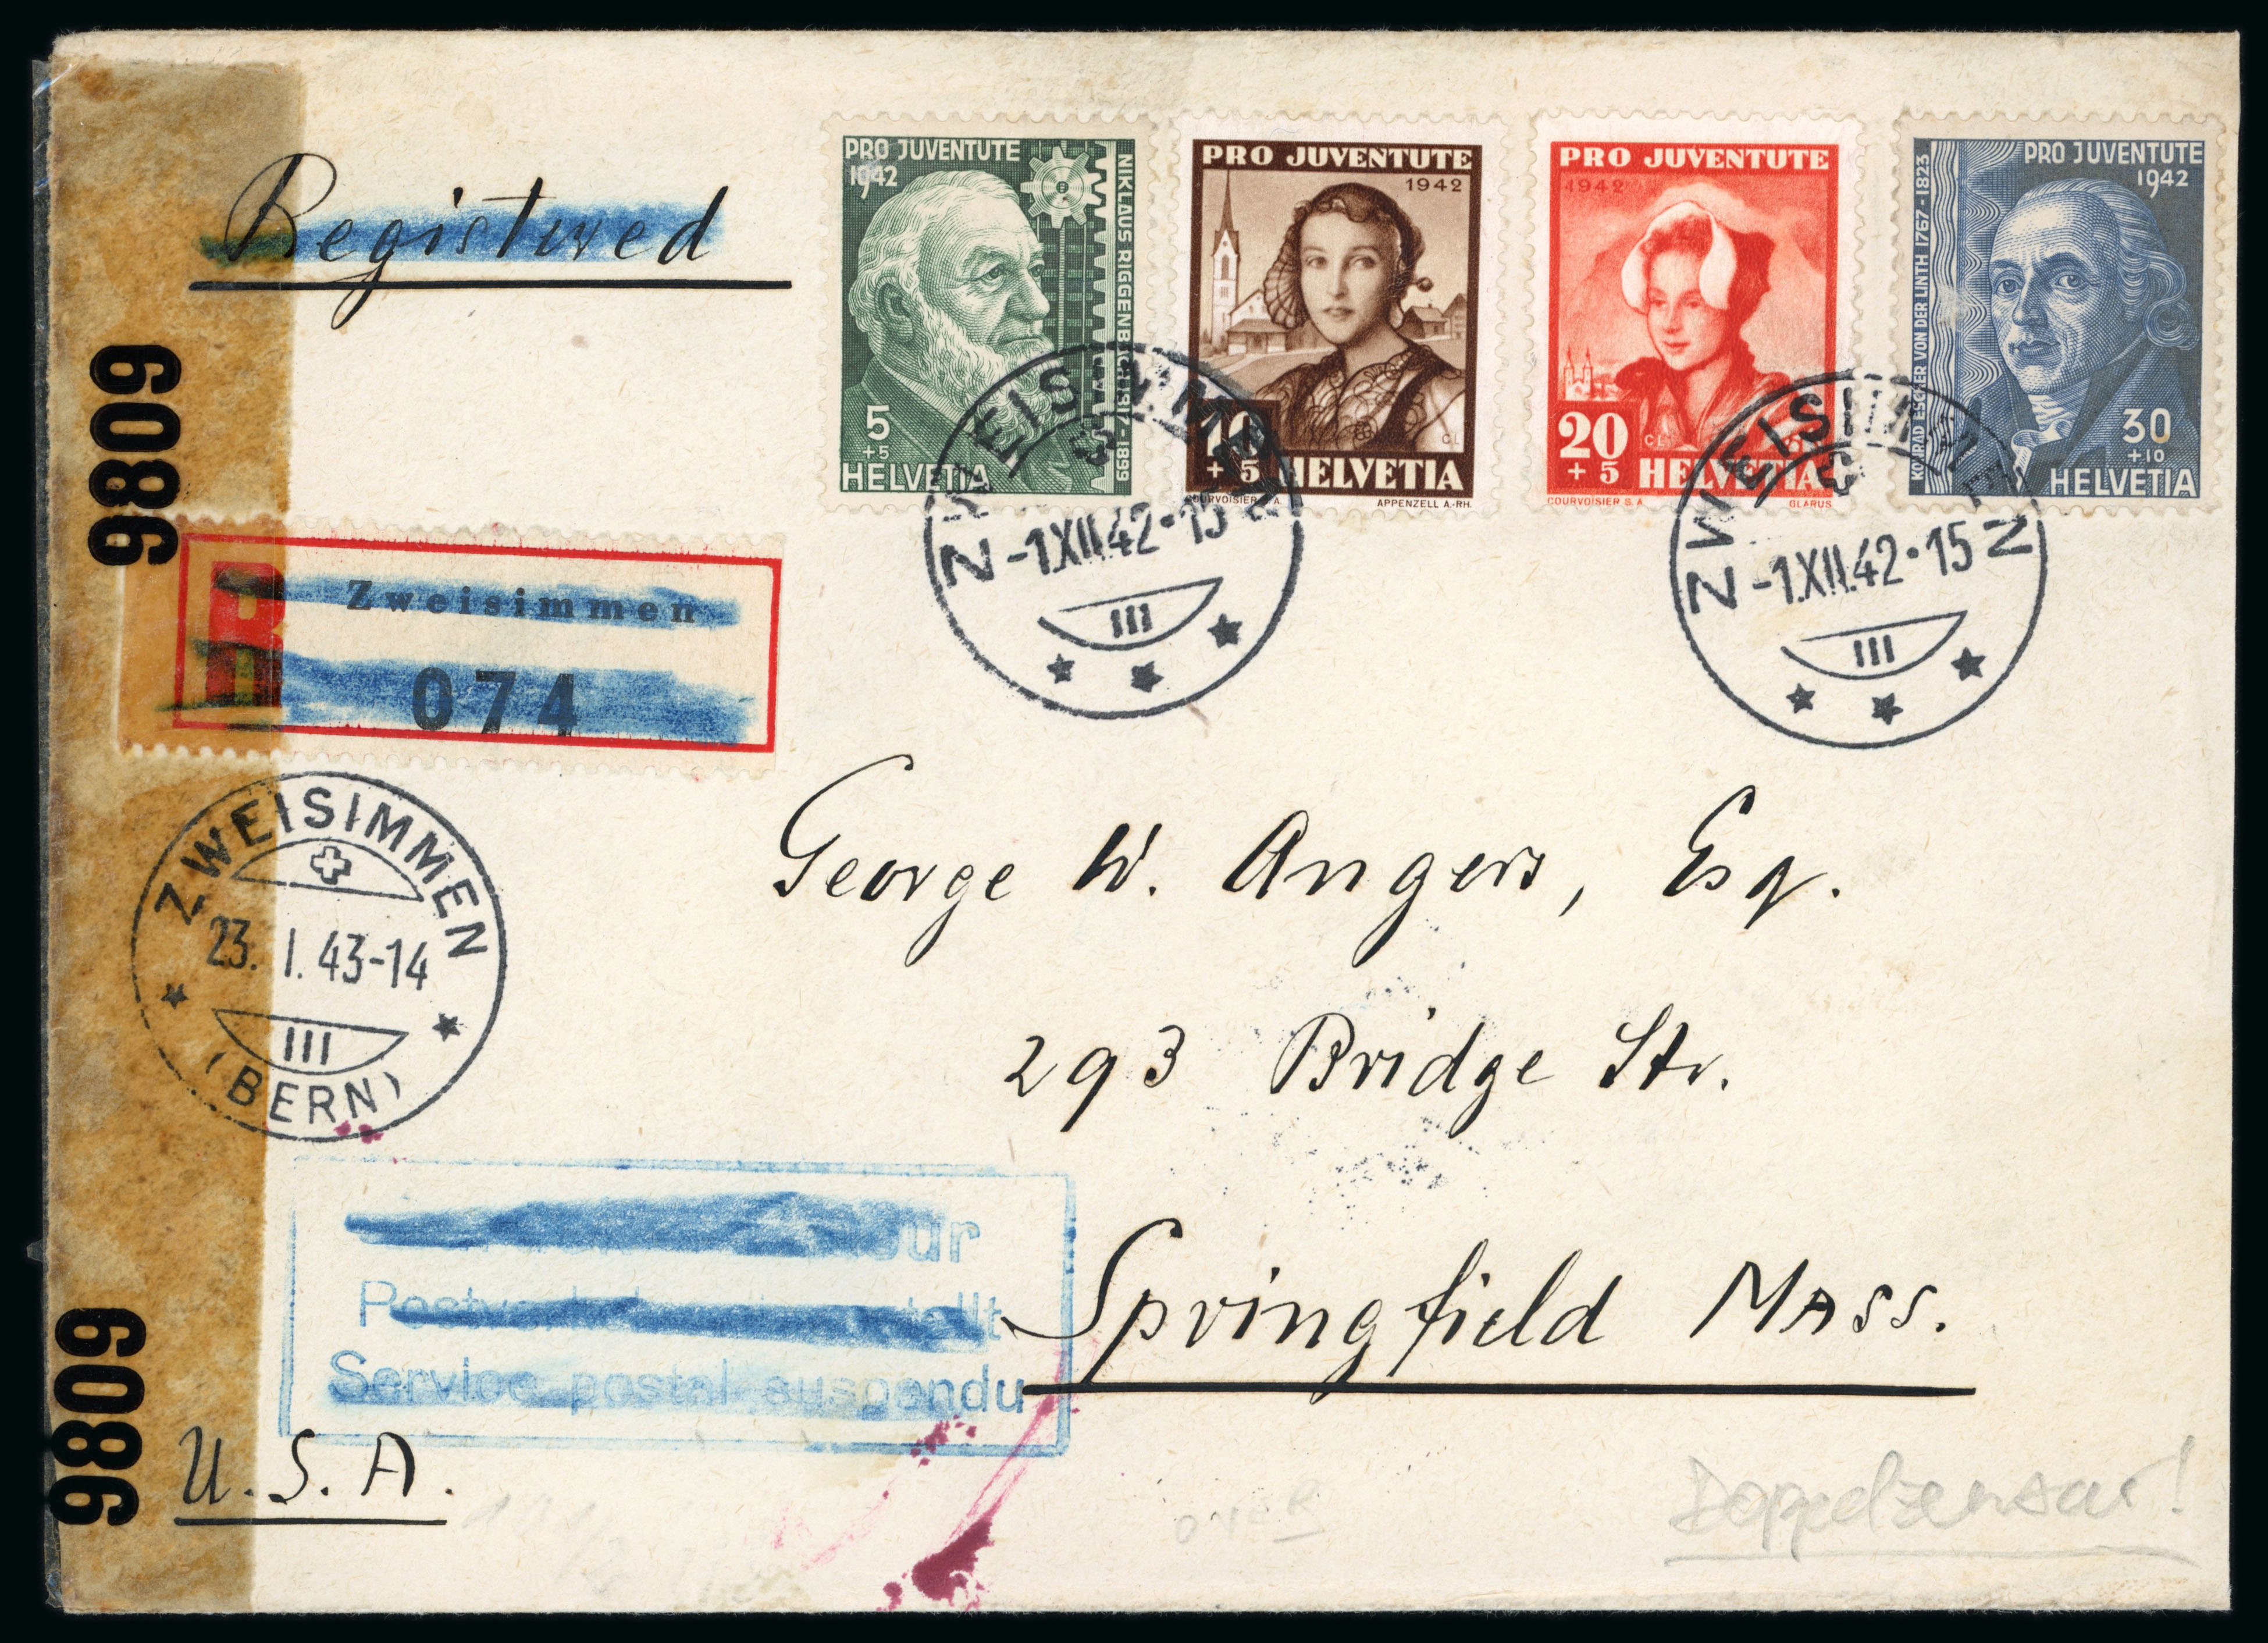 Registered
9809
9809
PRO JUVENTUTE
1942
NIKLAUS RIGGENBACH 1817-1899
5
+5
HELVETIA
PRO JUVENTUTE
1942
10
+5
HELVETIA
COURVOISIER S.A.
APPENZELL A.-RH.
CL
PRO JUVENTUTE
1942
20
+5
CL
HELVETIA
COURVOISIER S.A.
GLARUS
PRO JUVENTUTE
1942
KONRAD ESCHER VON DER LINTH 1767-1823
30
+10
HELVETIA
ZWEISIMMEN
-1.XII.42•15
III
ZWEISIMMEN
-1.XII.42•15
III
R
Zweisimmen
074
ZWEISIMMEN
23. I. 43-14
III
(BERN)
George W. Angers, Esq.
293 Bridge Str.
Springfield Mass.
U.S.A.
Service postal suspendu
oveR
Doppelzensur!